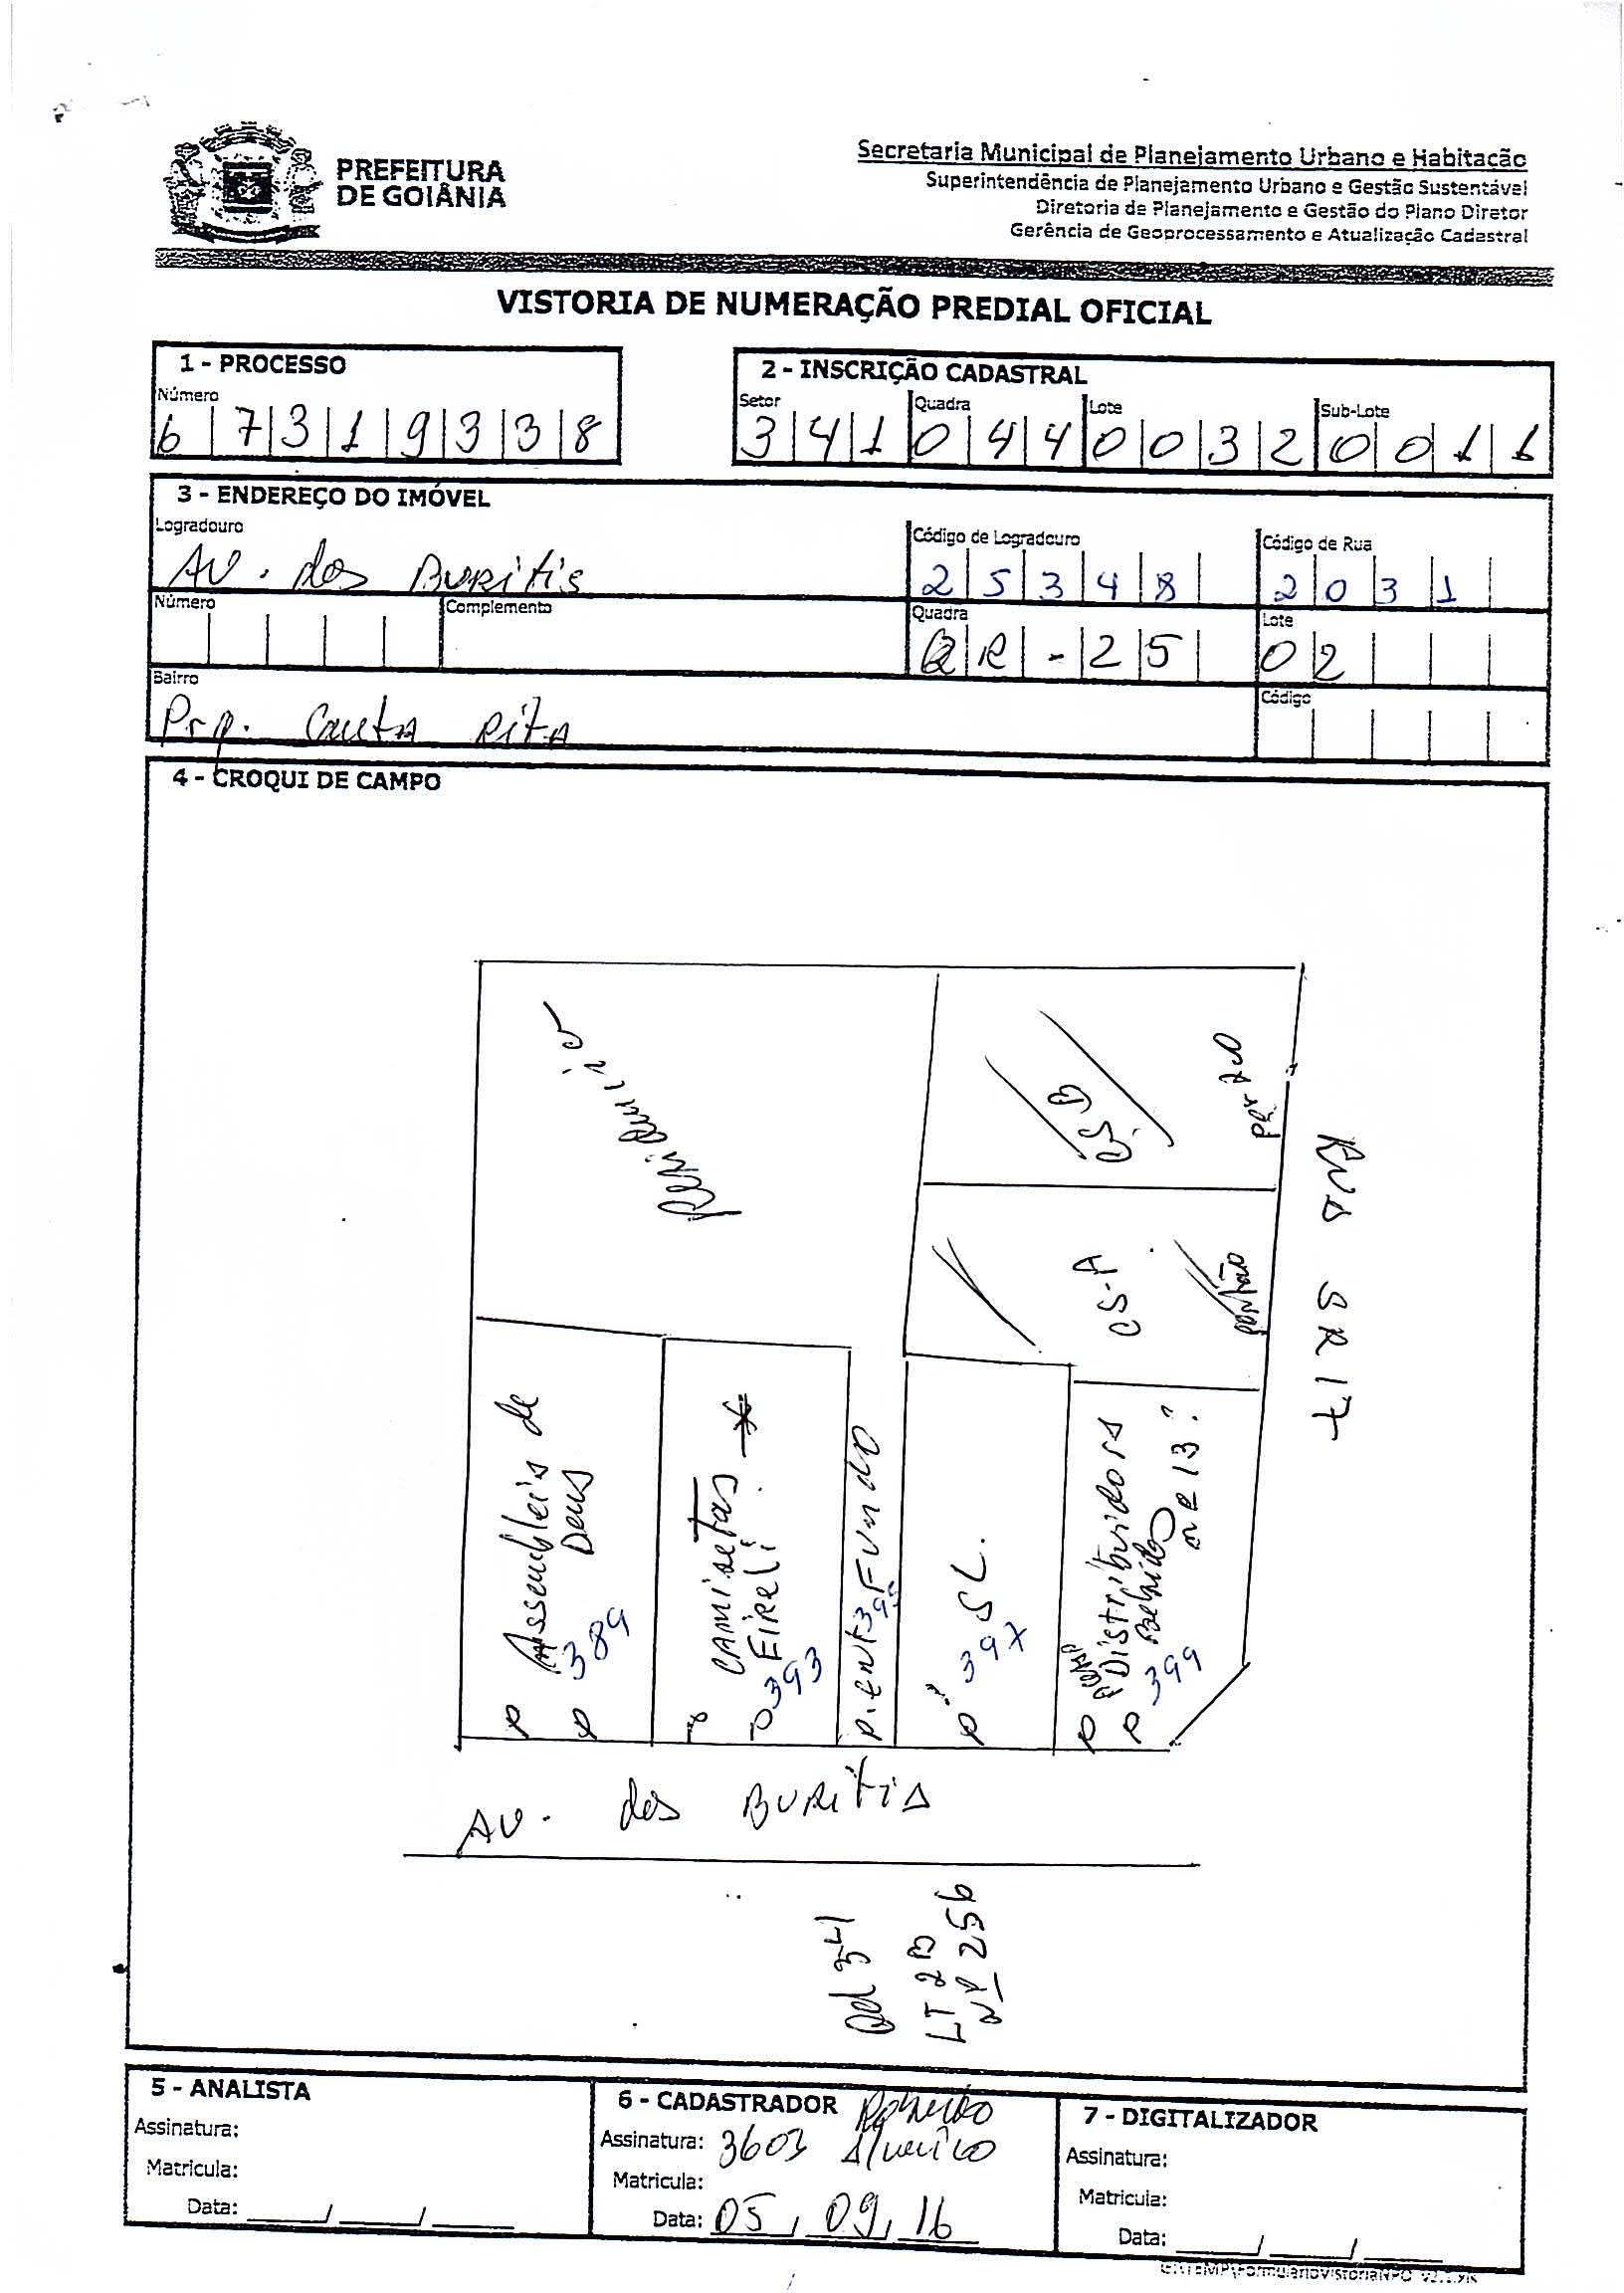 PREFEITURA
DE GOIÂNIA
Secretaria Municipal de Planejamento Urbano e Habitação
Superintendência de Planejamento Urbano e Gestão Sustentável
Diretoria de Planejamento e Gestão do Plano Diretor
Gerência de Geoprocessamento e Atualização Cadastral
VISTORIA DE NUMERAÇÃO PREDIAL OFICIAL
1 - PROCESSO
Número
6 7 3 1 9 3 3 8
2 - INSCRIÇÃO CADASTRAL
Setor Quadra Lote Sub-Lote
3 4 1 0 4 4 0 0 3 2 0 0 1 1
3 - ENDEREÇO DO IMÓVEL
Logradouro Código de Logradouro Código de Rua
AV. dos BURitis 2 5 3 4 8 2 0 3 1
Número Complemento Quadra Lote
QR-25 02
Bairro Código
Prq. RitA
4 - CROQUI DE CAMPO
CS B
CS-A
portão
RUA SR 17
Assembleia de
Deus
389
CAMisetas
Eireli
393
P. ent 395 Fundo
SL.
397
Distribuidora
399
AV. dos BURitis
Qd 34
LT 2B
Nº 256
5 - ANALISTA
Assinatura:
Matricula:
Data: / /
6 - CADASTRADOR
Assinatura: 3603
Matricula:
Data: 05/09/16
7 - DIGITALIZADOR
Assinatura:
Matricula:
Data: / /